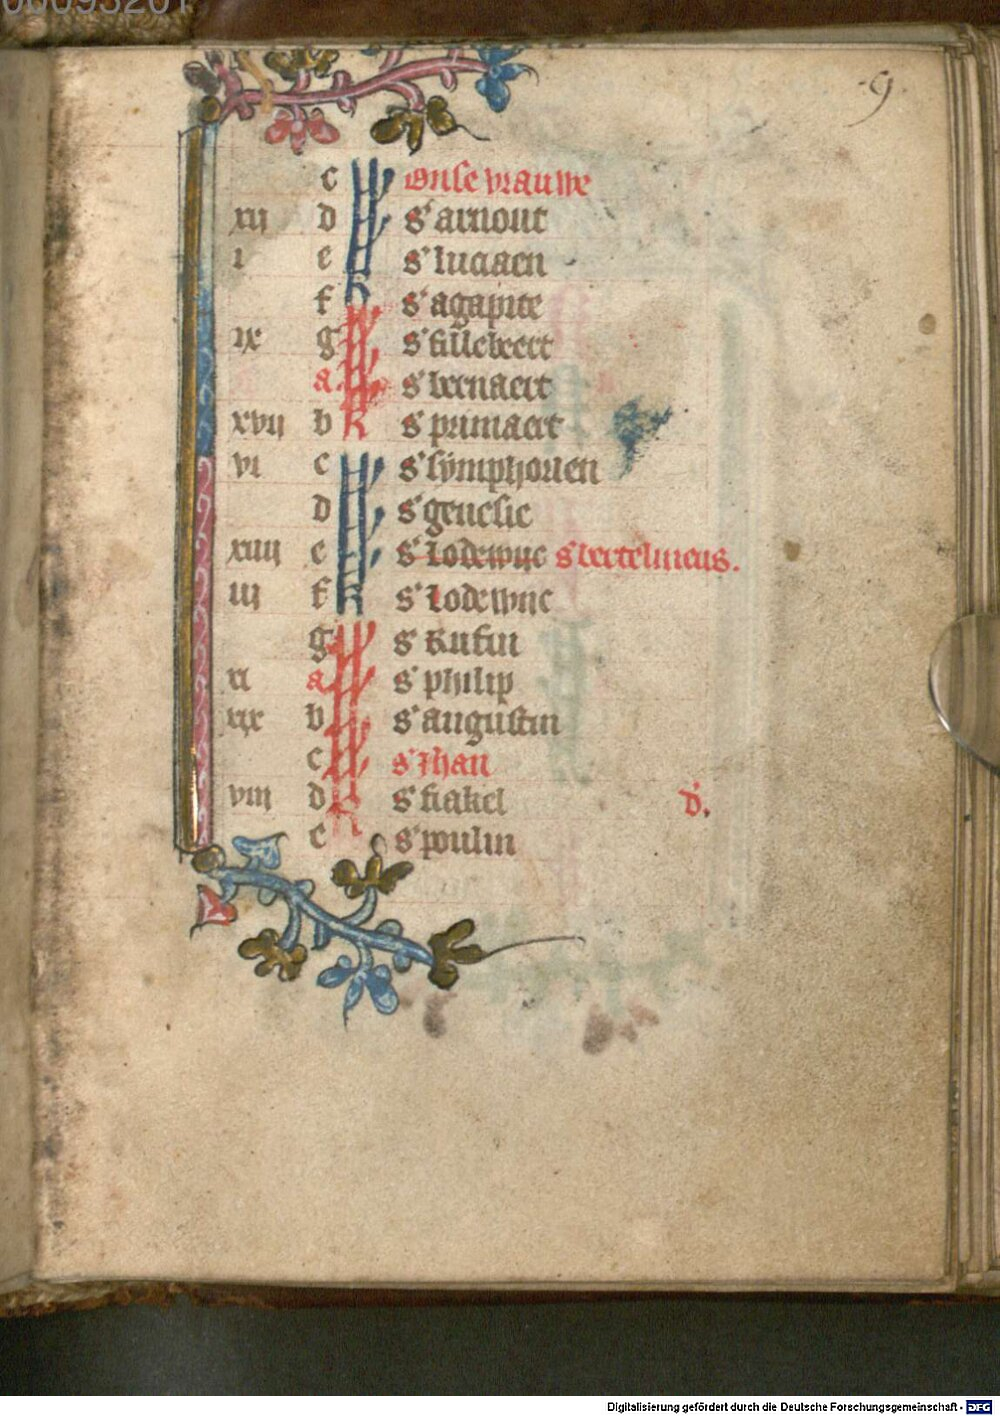 00093201
9
c onse vrauwe
xij d s' arnout
i e s' luciaen
f s' agapite
ix g s' fillebeert
a s' bernaert
xvij b s' primaert
vi c s' symphorien
d s' genesie
xiiij e s' Lodewijc s' bertelmeus.
iij f s' Lodewijc
g s' Rufin
xi a s' philip
xix b s' augustin
c s' Jhan
viij d s' fiakel d'.
e s' poulin
Digitalisierung gefördert durch die Deutsche Forschungsgemeinschaft - DFG